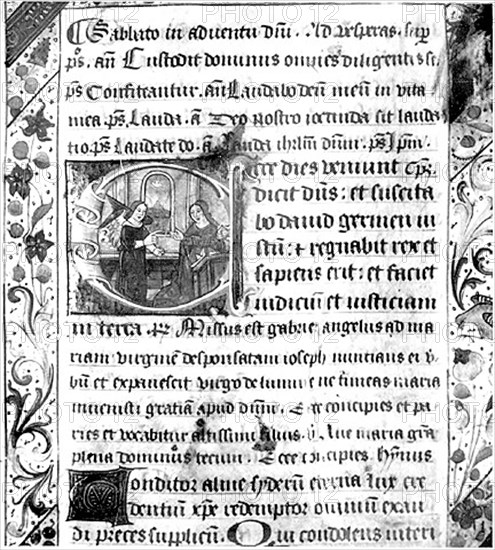 Sabbato in adventu dñi. Ad vesperas. sup
ps. añ Custodit dominus omnes diligentes se.
ps Confiteantur. añ Laudabo deũ meũ in vita
mea. ps. Lauda. ã Deo nostro iocunda sit lauda
tio. ps Laudate do. ã Lauda ihrlm dñim. ps Ipm.
Ecce dies veniunt
dicit dñs: et suscita
bo david germen iu
stũ: et regnabit rex et
sapiens erit: et faciet
iudiciũ et iusticiam
in terra Missus est gabriel angelus ad ma
riam virginẽ desponsatam ioseph nuncians ei v
bũ et expavescit virgo de lumine ne timeas maria
invenisti gratiã apud dñim. Ecce concipies et pa
ries et vocabitur altissimi filius. v. Ave maria grã
plena dominus tecum. Ecce concipies. hymnus
Conditor alme syderũ eterna lux cre
dentiũ xpe redemptor omnium exau
di preces supplicũ. Qui condolens interi